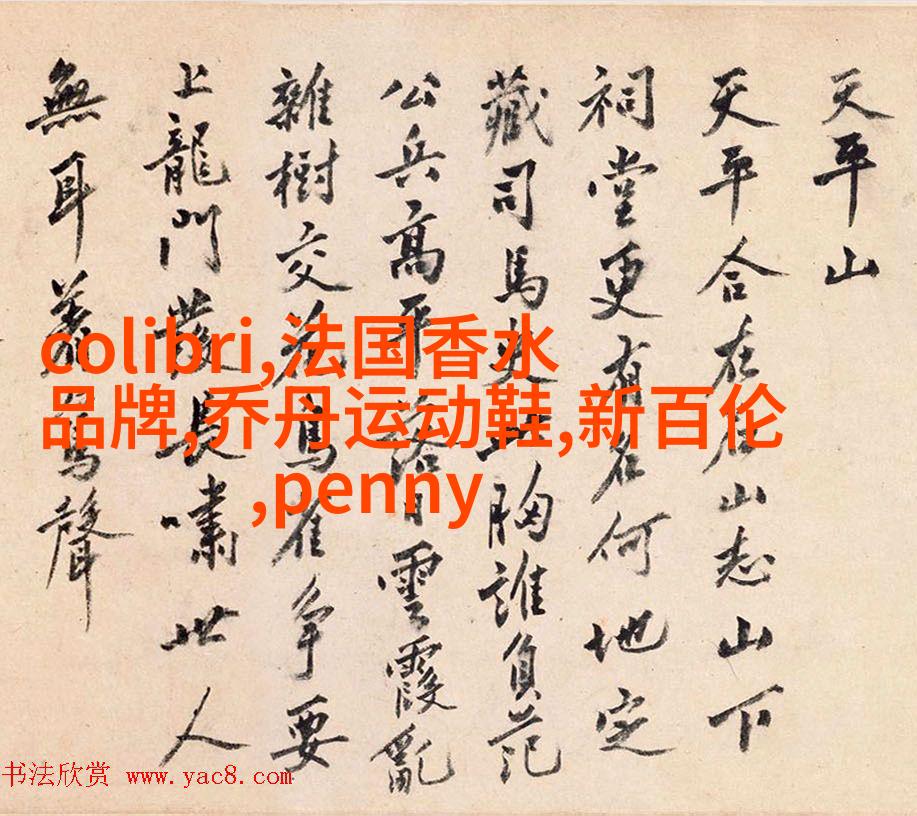 天平山
天平合在山志山下
祠堂更有名何地定
藏司馬史此胸誰負范
公兵高平落日雲霞亂
雜樹交花鳥雀爭要
上龍門發長嘯世人
無耳聲
colibri,法国香水
品牌,乔丹运动鞋,新百伦
,penny
书法欣赏 www.yac8.com